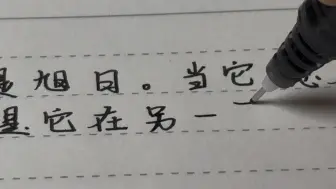 是旭日。当它
是它在另一